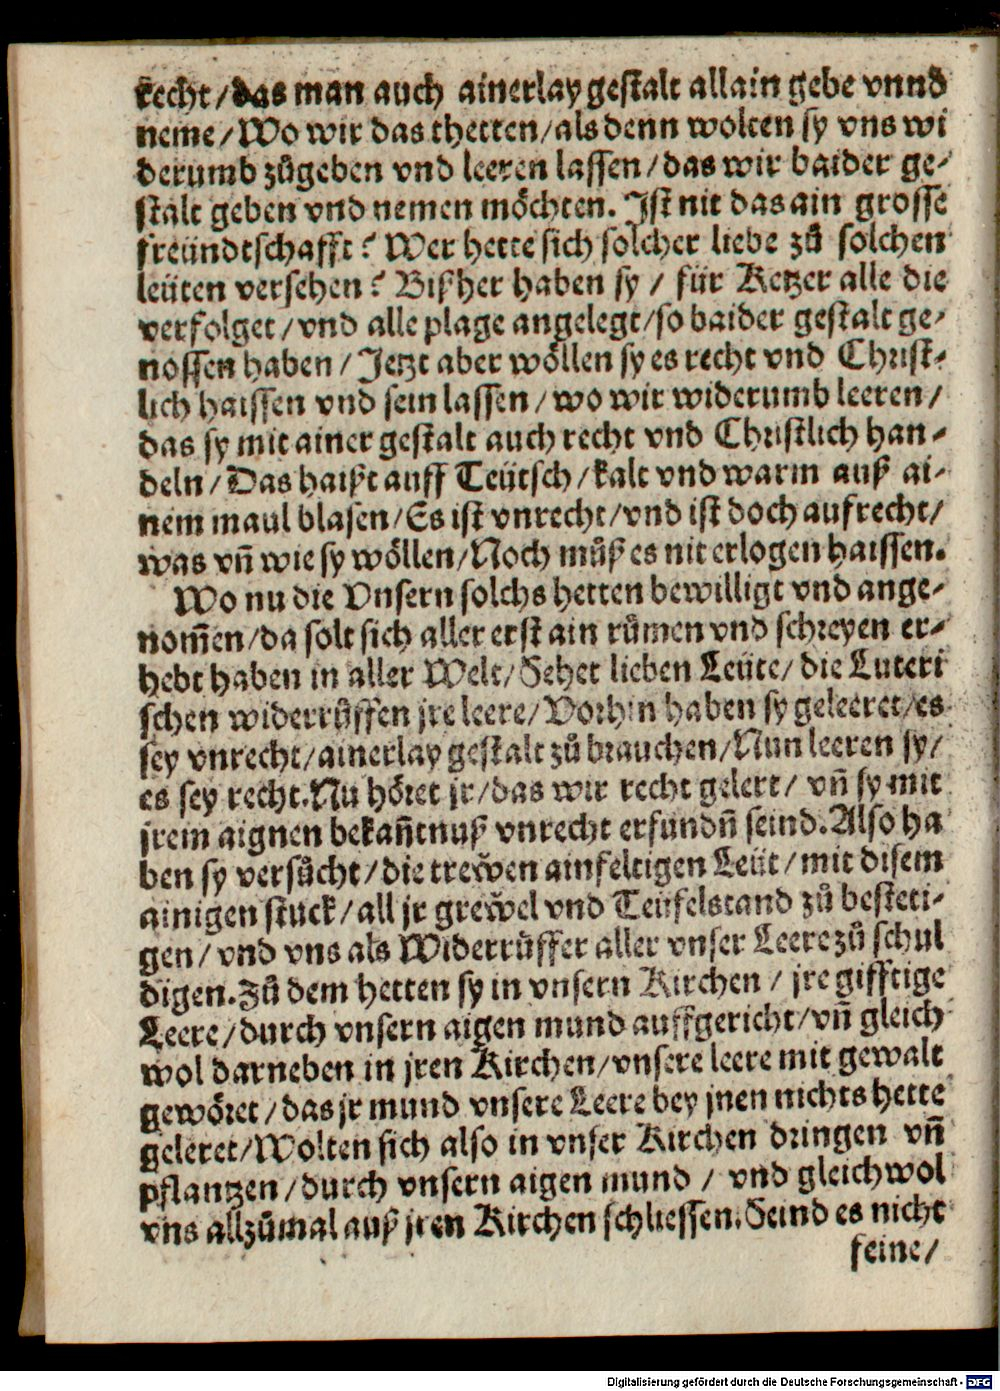 recht/das man auch ainerlay gestalt allain gebe vnnd
neme/Wo wir das thetten/als denn wolten sy vns wi
derumb zůgeben vnd leeren lassen/das wir baider ge-
stalt geben vnd nemen möchten. Ist nit das ain grosse
freündtschafft? Wer hette sich solcher liebe zů solchen
leüten versehen? Bißher haben sy / für Ketzer alle die
verfolget/vnd alle plage angelegt/so baider gestalt ge-
nossen haben/Jetzt aber wöllen sy es recht vnd Christ-
lich haissen vnd sein lassen/wo wir widerumb leeren/
das sy mit ainer gestalt auch recht vnd Christlich han-
deln/Das haißt auff Teütsch/kalt vnd warm auß ai-
nem maul blasen/Es ist vnrecht/vnd ist doch aufrecht/
was vñ wie sy wöllen/Noch můß es nit erlogen haissen.
Wo nu die Vnsern solchs hetten bewilligt vnd ange-
nom̃en/da solt sich aller erst ain růmen vnd schreyen er-
hebt haben in aller Welt/Sehet lieben Leüte/die Luteri
schen widerrůffen jre leere/Vorhin haben sy geleeret/es
sey vnrecht/ainerlay gestalt zů brauchen/Nun leeren sy/
es sey recht.Nu höret jr/das wir recht gelert/ vñ sy mit
jrem aignen bekañtnuß vnrecht erfundñ seind.Also ha
ben sy versůcht/die trewen ainfeltigen Leüt/mit disem
ainigen stuck/all jr grewel vnd Teüfelstand zů besteti-
gen/vnd vns als Widerrůffer aller vnser Leere zů schul
digen.Zů dem hetten sy in vnsern Kirchen / jre gifftige
Leere/durch vnsern aigen mund auffgericht/vñ gleich
wol darneben in jren Kirchen/vnsere leere mit gewalt
gewöret/das jr mund vnsere Leere bey jnen nichts hette
geleret/Wolten sich also in vnser Kirchen dringen vñ
pflantzen/durch vnsern aigen mund / vnd gleichwol
vns allzůmal auß jren Kirchen schliessen.Seind es nicht
feine/
Digitalisierung gefördert durch die Deutsche Forschungsgemeinschaft - DFG